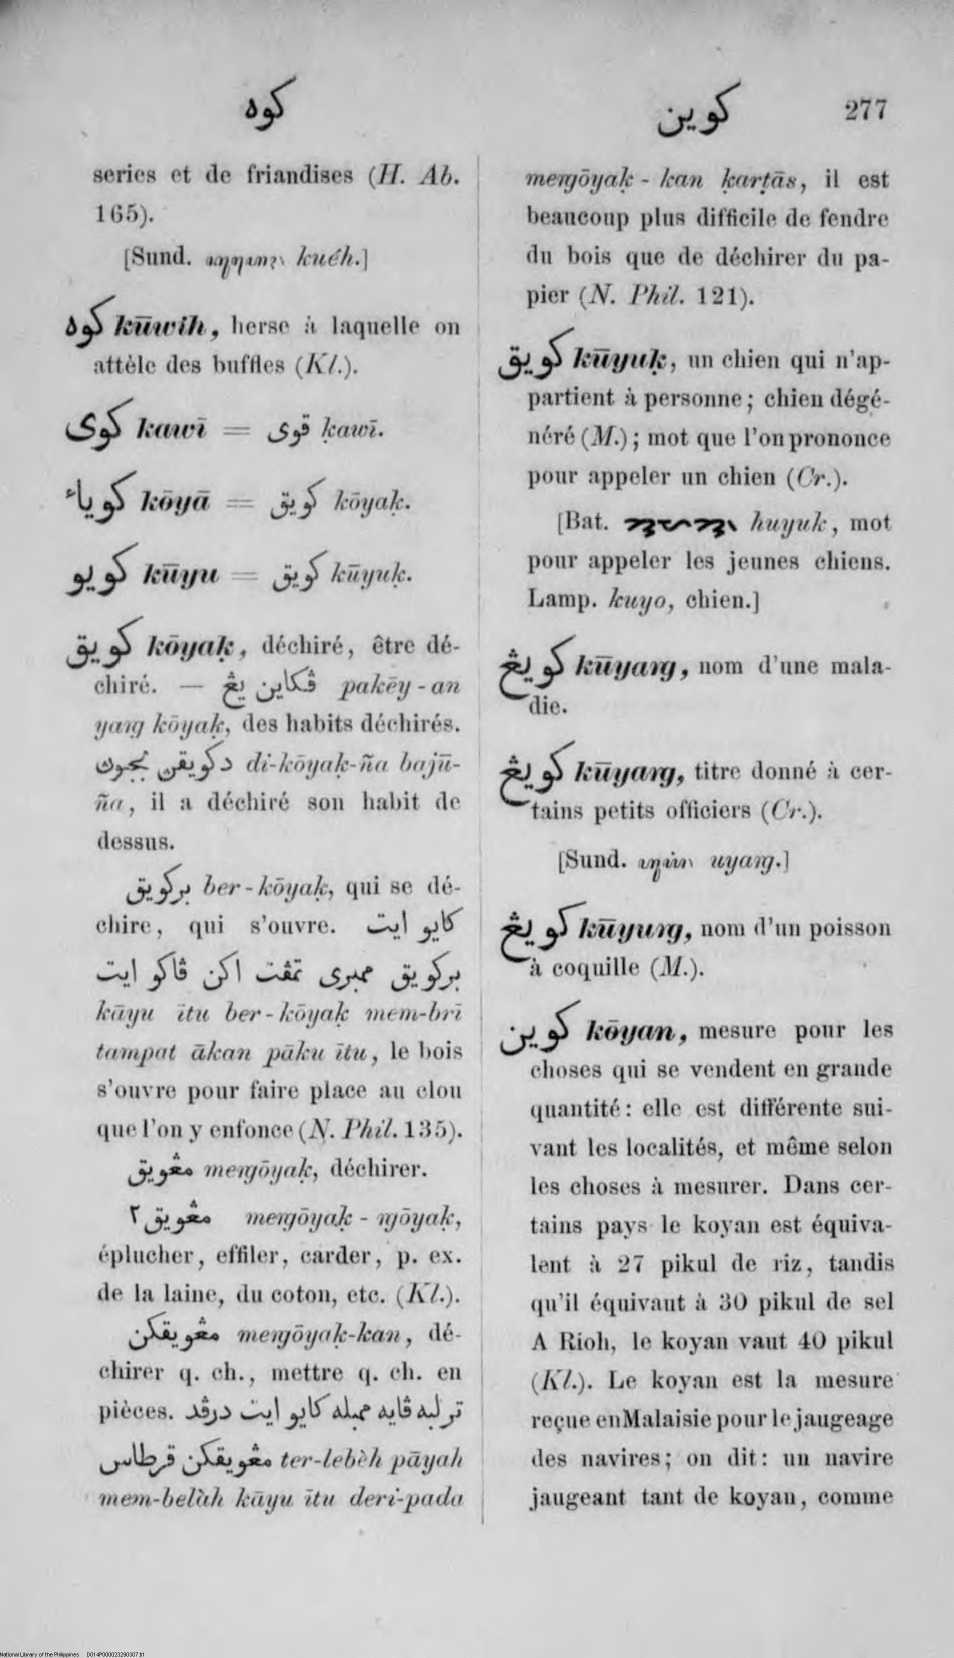 كوه
كوين
277
series et de friandises (H. Ab.
165).
[Sund. kuéh.]
كوه kūwih, herse à laquelle on
attèle des buffles (Kl.).
كوى kawī = قوى ḳawī.
كوياء kōyā = كويق kōyaḳ.
كويو kūyu = كويق kūyuḳ.
كويق kōyaḳ, déchiré, être dé-
chiré. — ڤكاين يڠ pakēy-an
yaṅg kōyaḳ, des habits déchirés.
دكويقن بجون di-kōyaḳ-ña bajū-
ña, il a déchiré son habit de
dessus.
بركويق ber-kōyaḳ, qui se dé-
chire, qui s'ouvre. كايو ايت
بركويق ممبرى تمڤت اكن ڤاكو ايت
kāyu ītu ber-kōyaḳ mem-brī
tampat ākan pāku ītu, le bois
s'ouvre pour faire place au clou
que l'on y enfonce (N. Phil. 135).
مڠويق meṅgōyaḳ, déchirer.
مڠويق٢ meṅgōyaḳ-ṅgōyaḳ,
éplucher, effiler, carder, p. ex.
de la laine, du coton, etc. (Kl.).
مڠويقكن meṅgōyaḳ-kan, dé-
chirer q. ch., mettre q. ch. en
pièces. ترلبه ڤايه ممبله كايو ايت درڤد
مڠويقكن قرطاس ter-lebèh pāyah
mem-belàh kāyu ītu deri-pada
meṅgōyaḳ-kan ḳarṭās, il est
beaucoup plus difficile de fendre
du bois que de déchirer du pa-
pier (N. Phil. 121).
كويق kūyuḳ, un chien qui n'ap-
partient à personne; chien dégé-
néré (M.); mot que l'on prononce
pour appeler un chien (Cr.).
[Bat. huyuk, mot
pour appeler les jeunes chiens.
Lamp. kuyo, chien.]
كويڠ kūyaṅg, nom d'une mala-
die.
كويڠ kūyaṅg, titre donné à cer-
tains petits officiers (Cr.).
[Sund. uyaṅg.]
كويڠ kūyuṅg, nom d'un poisson
à coquille (M.).
كوين kōyan, mesure pour les
choses qui se vendent en grande
quantité: elle est différente sui-
vant les localités, et même selon
les choses à mesurer. Dans cer-
tains pays le koyan est équiva-
lent à 27 pikul de riz, tandis
qu'il équivaut à 30 pikul de sel
A Rioh, le koyan vaut 40 pikul
(Kl.). Le koyan est la mesure
reçue en Malaisie pour le jaugeage
des navires; on dit: un navire
jaugeant tant de koyan, comme
National Library of the Philippines